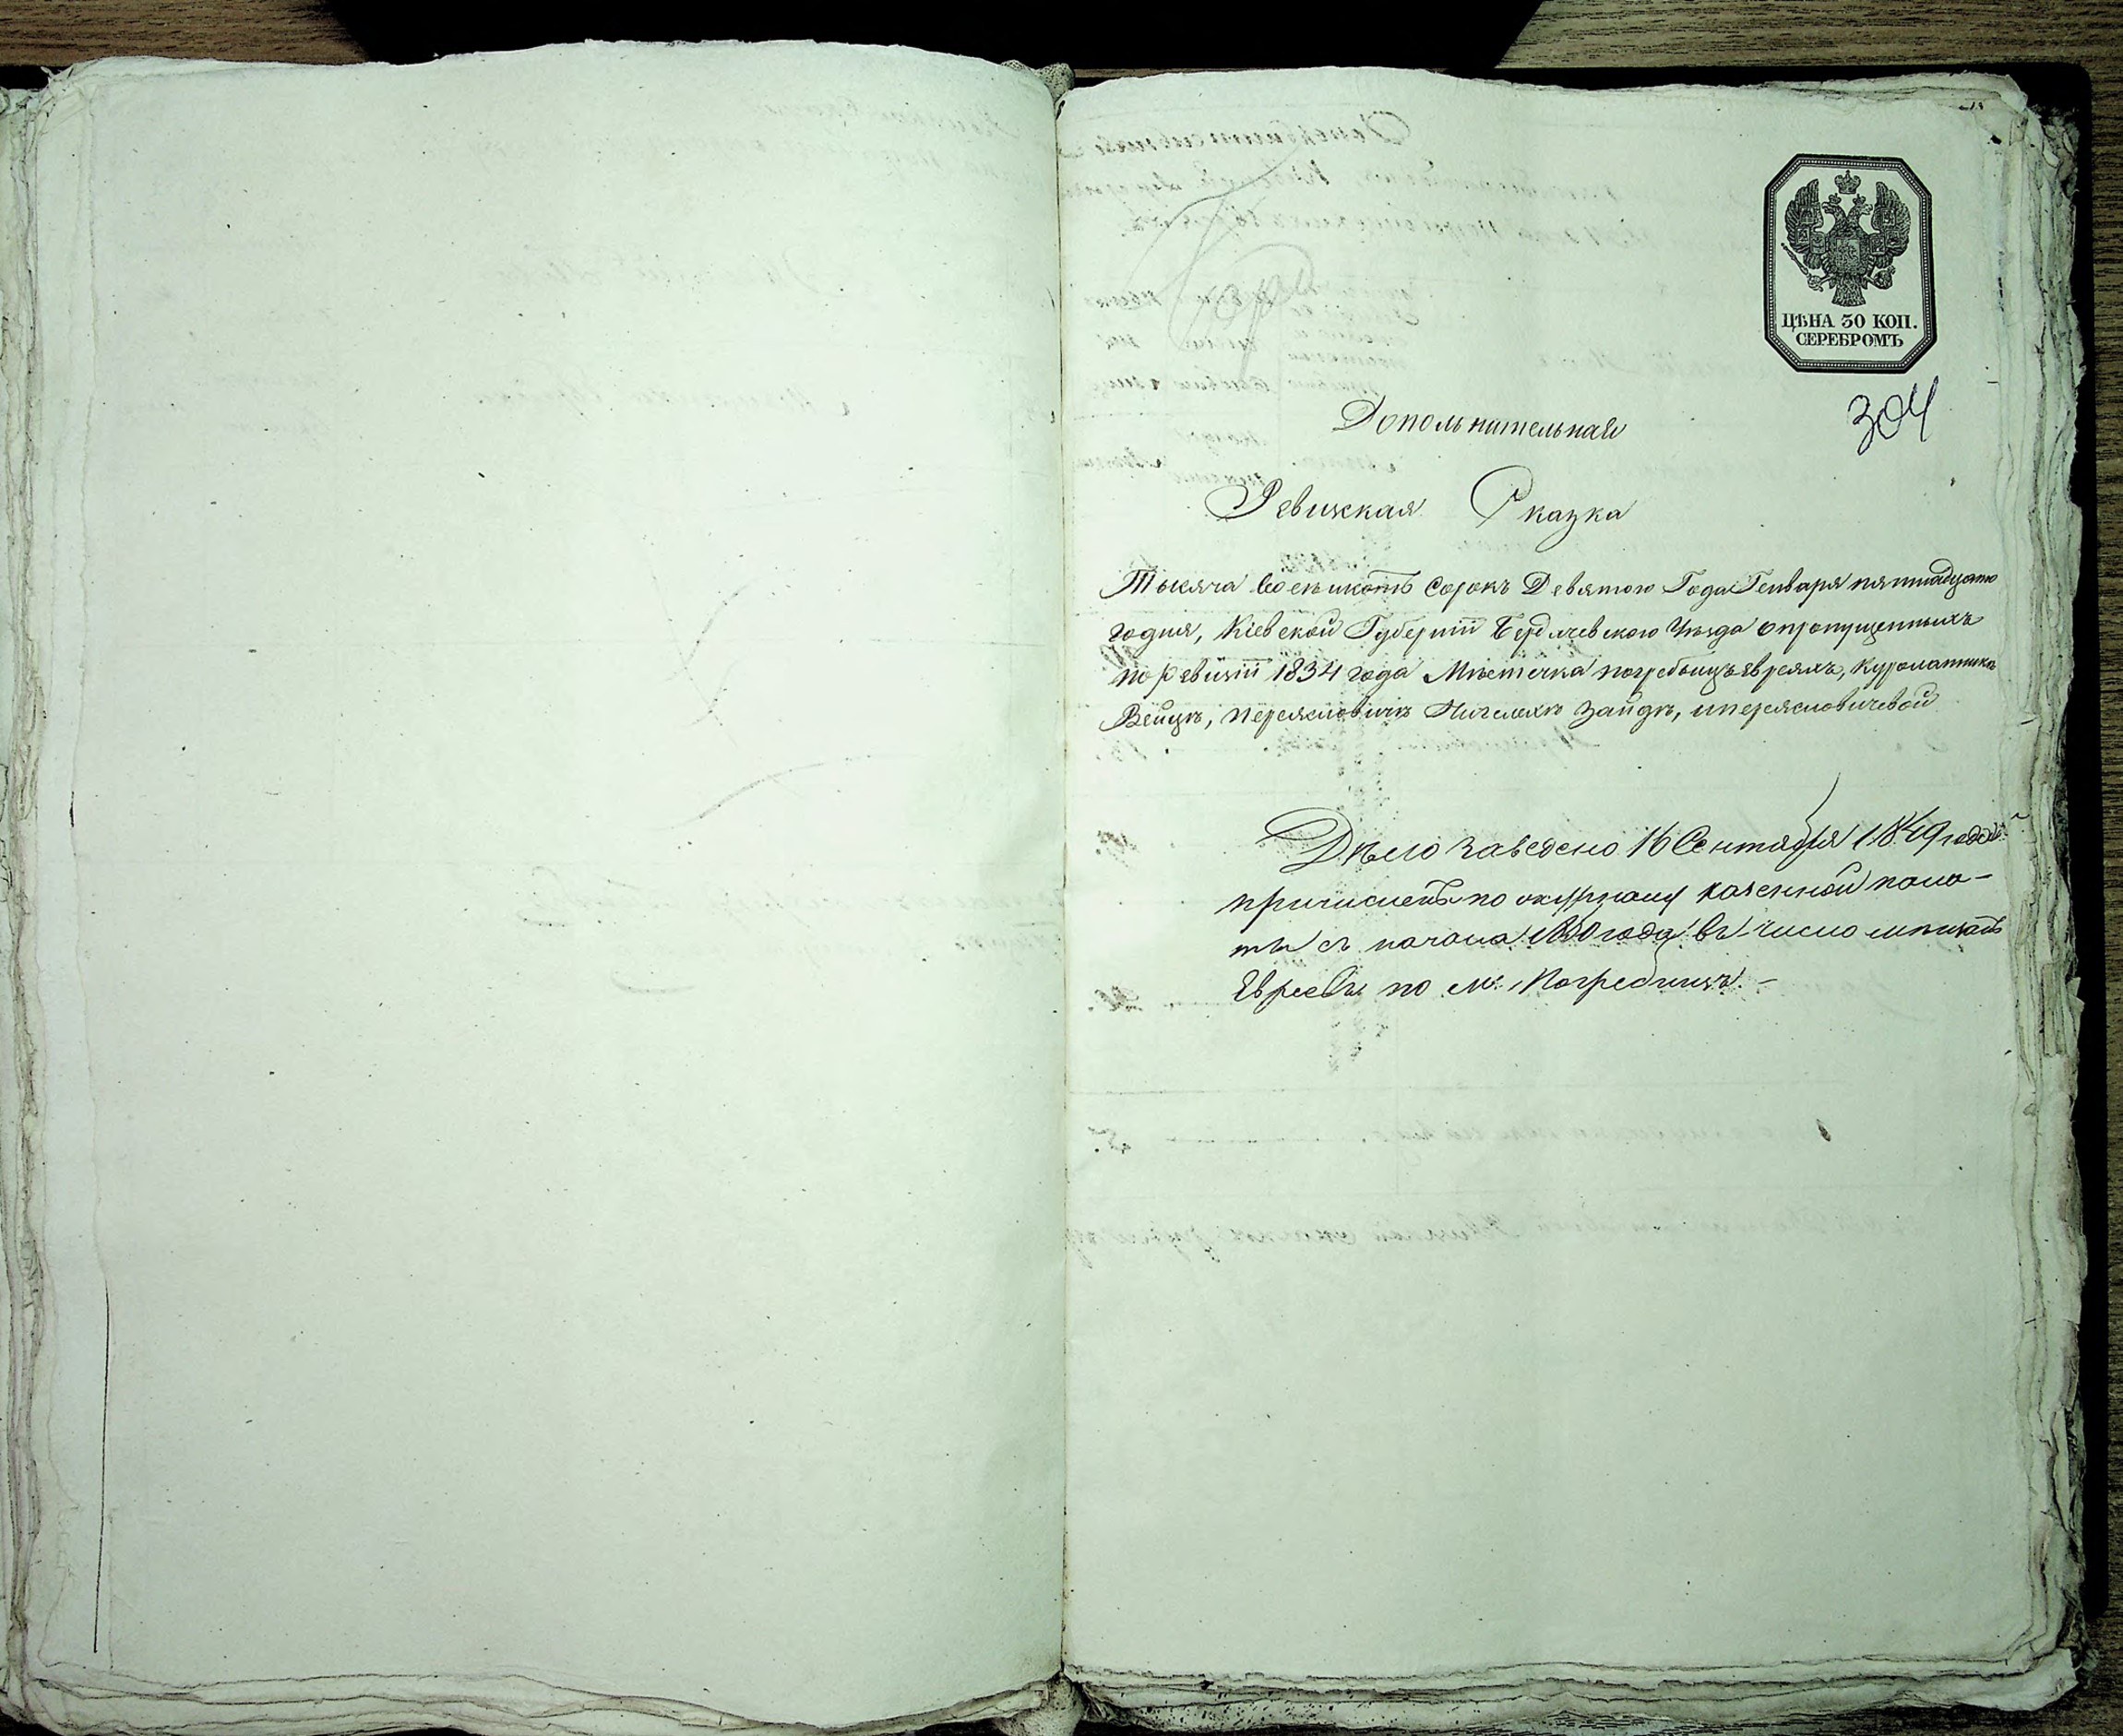 ЦѢНА 30 КОП.
СЕРЕБРОМЪ
304
Дополнительная
Ревизская Сказка
Тысяча восемьсотъ Сорокъ Девятого Года Генваря пятнадцато
годня, Кіевской Губерніи Бердичевского Уѣзда опропущенныхъ
по ревизіи 1834 года Мѣстечка погребыщъ евреяхъ,
Зайдѣ,
Дѣло заведено 16 Сентября 1849 года
причислен по казенной пала-
ты съ начала 1850 года въ число мѣщанъ
Евреевъ по м. Погребищъ.-